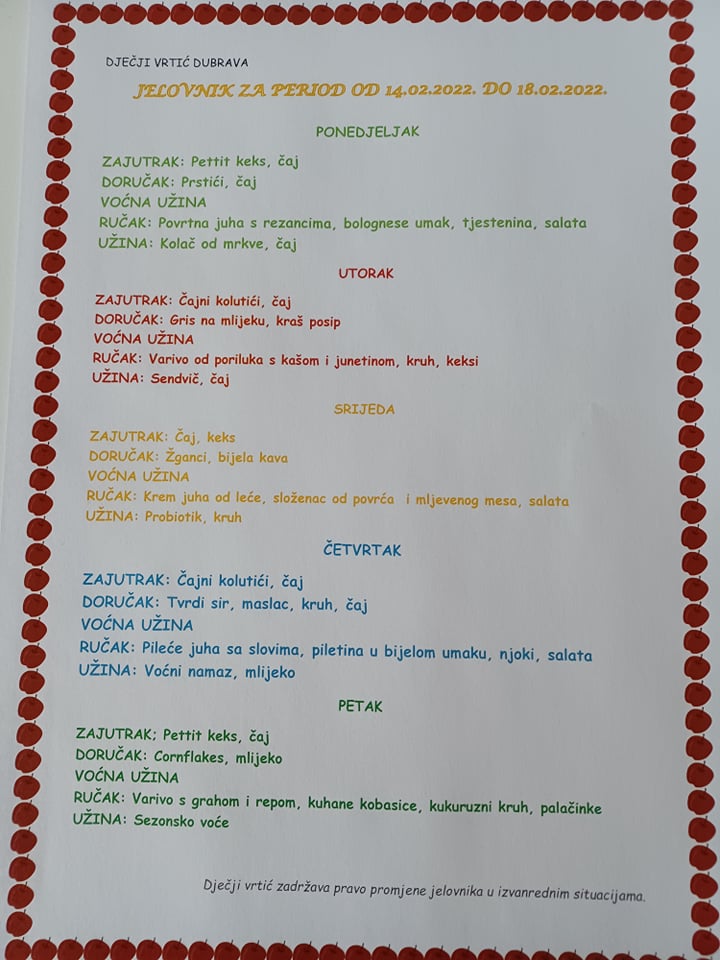 DJEČJI VRTIĆ DUBRAVA
JELOVNIK ZA PERIOD OD 14.02.2022. DO 18.02.2022.
PONEDJELJAK
ZAJUTRAK: Pettit keks, čaj
DORUČAK: Prstići, čaj
VOĆNA UŽINA
RUČAK: Povrtna juha s rezancima, bolognese umak, tjestenina, salata
UŽINA: Kolač od mrkve, čaj
UTORAK
ZAJUTRAK: Čajni kolutići, čaj
DORUČAK: Gris na mlijeku, kraš posip
VOĆNA UŽINA
RUČAK: Varivo od poriluka s kašom i junetinom, kruh, keksi
UŽINA: Sendvič, čaj
SRIJEDA
ZAJUTRAK: Čaj, keks
DORUČAK: Žganci, bijela kava
VOĆNA UŽINA
RUČAK: Krem juha od leće, složenac od povrća i mljevenog mesa, salata
UŽINA: Probiotik, kruh
ČETVRTAK
ZAJUTRAK: Čajni kolutići, čaj
DORUČAK: Tvrdi sir, maslac, kruh, čaj
VOĆNA UŽINA
RUČAK: Pileće juha sa slovima, piletina u bijelom umaku, njoki, salata
UŽINA: Voćni namaz, mlijeko
PETAK
ZAJUTRAK; Pettit keks, čaj
DORUČAK: Cornflakes, mlijeko
VOĆNA UŽINA
RUČAK: Varivo s grahom i repom, kuhane kobasice, kukuruzni kruh, palačinke
UŽINA: Sezonsko voće
Dječji vrtić zadržava pravo promjene jelovnika u izvanrednim situacijama.